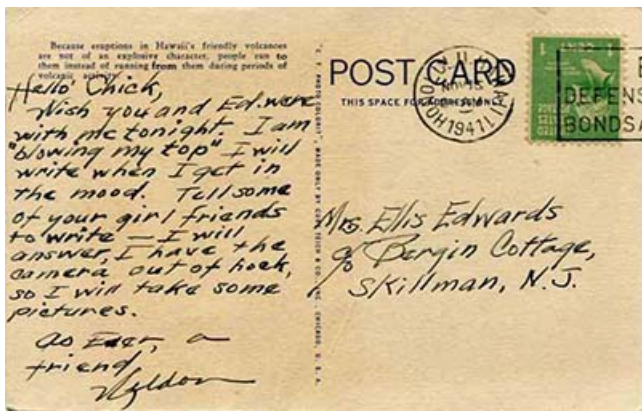 Because eruptions in Hawaii's friendly volcanoes
are not of an explosive character, people run to
them instead of running from them during periods of
volcanic activity.
Hello Chick,
Wish you and Ed. were
with me tonight. I am
"blowing my top" I will
write when I get in
the mood. Tell some
of your girl friends
to write — I will
answer, I have the
camera out of hock,
so I will take some
pictures.
As Ever, a
friend
Weldon
POST CARD
THIS SPACE FOR ADDRESS ONLY
HONOLULU
HAWAII
NOV 15
1941
1
DEFENS
BONDS
Mrs. Ellis Edwards
c/o Bergin Cottage,
Skillman, N.J.
MADE ONLY BY CURT TEICH & CO., INC., CHICAGO, U.S.A.